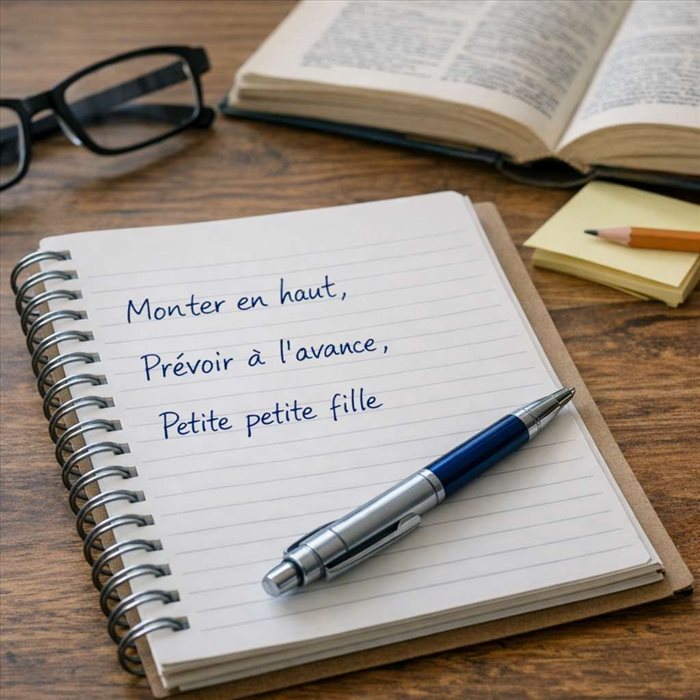 Monter en haut,
Prévoir à l'avance,
Petite petite fille